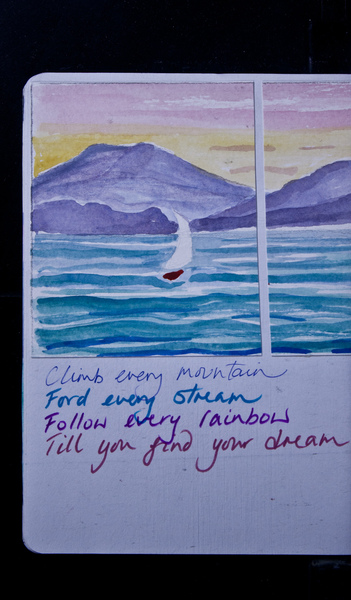 Climb every mountain
Ford every stream
Follow every rainbow
Till you find your dream